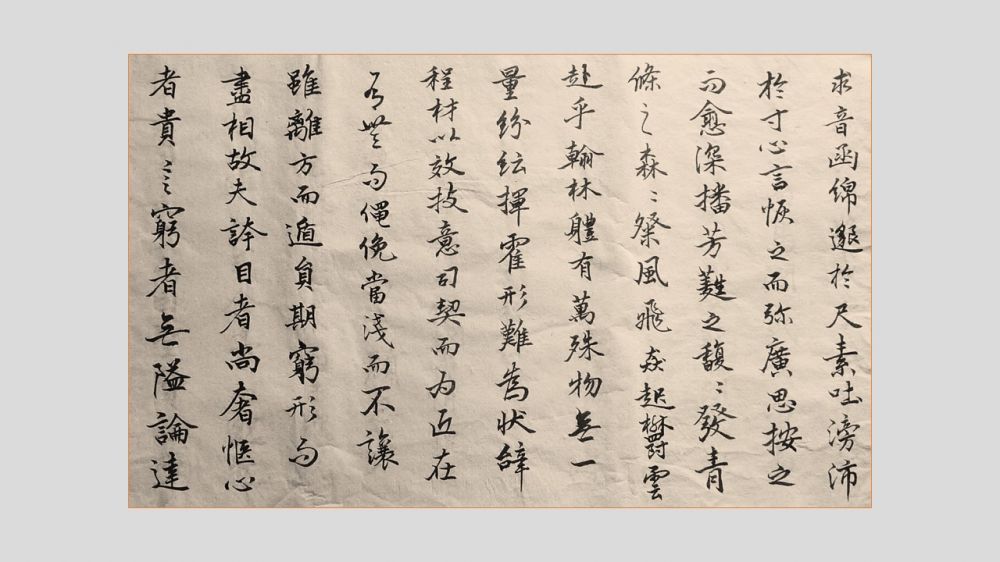 求音函綿邈於尺素吐滂沛
於寸心言恢之而弥廣思按之
而愈深播芳蕤之馥〻發青
條之森〻粲風飛猋起欝雲
起乎翰林體有萬殊物無一
量紛紜揮霍形難為状辞
程材以效技意司契而为匠在
有無而僶俛當淺而不讓
雖離方而遁員期窮形而
盡相故夫誇目者尚奢愜心
者貴當言窮者无隘論達